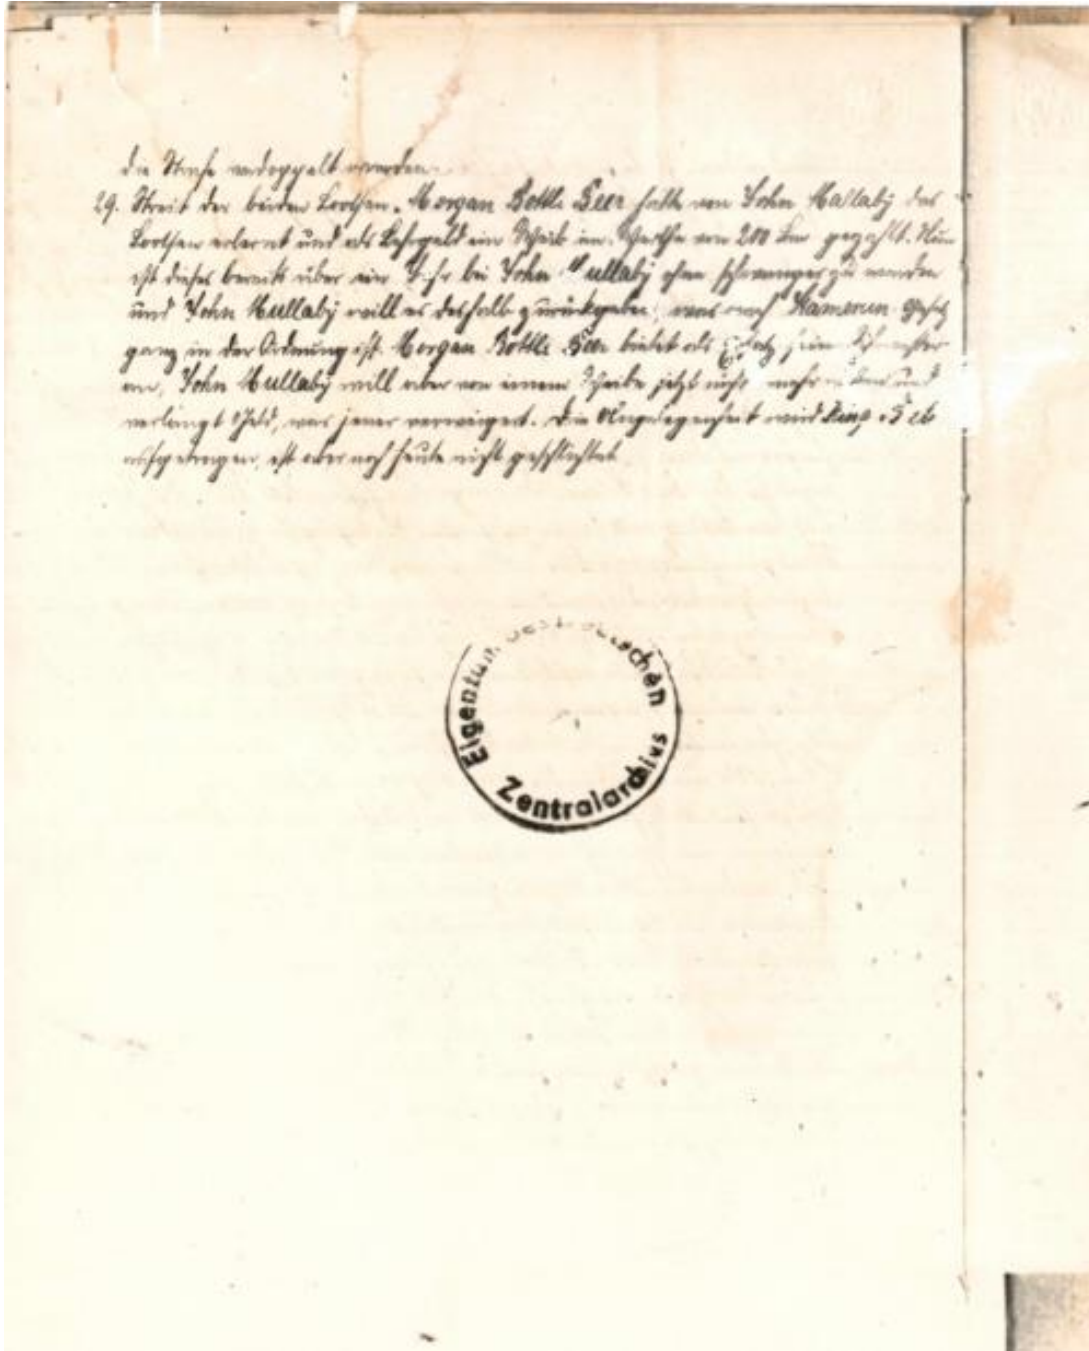 die Strafe verdoppelt werden.
29. Streit der beiden Lootsen. Morgan Bottle Beer hatte von John Mallaby das
Lootsen erlernt und als Lehrgeld ein Weib im Werthe von 200 gezahlt. Nun
ist dieses bereits über ein Jahr bei John Mullaby ohne schwanger zu werden
und John Mullaby will es deshalb zurückgeben, was nach Kamerun Gesetz
ganz in der Ordnung ist. Morgan Bottle Beer bietet als Ersatz seine Schwester
an, John Mullaby will aber von einem Weibe jetzt nichts mehr und
verlangt Geld, was jener verweigert. Die Angelegenheit wird King Bell
vorgetragen, ist aber noch heute nicht geschlichtet
Eigentum des Deutschen
Zentralarchivs